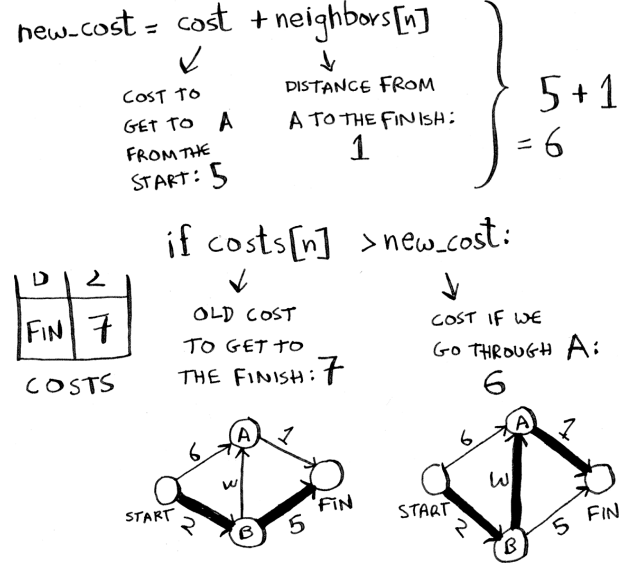 new_cost = cost + neighbors[n]
COST TO
GET TO A
FROM THE
START: 5
DISTANCE FROM
A TO THE FINISH:
1
5 + 1
= 6
if costs[n] > new_cost:
OLD COST
TO GET TO
THE FINISH: 7
COST IF WE
GO THROUGH A:
6
D 2
FIN 7
COSTS
A
6 1
START
2
B
5
FIN
A
6 1
START
2
B
5
FIN